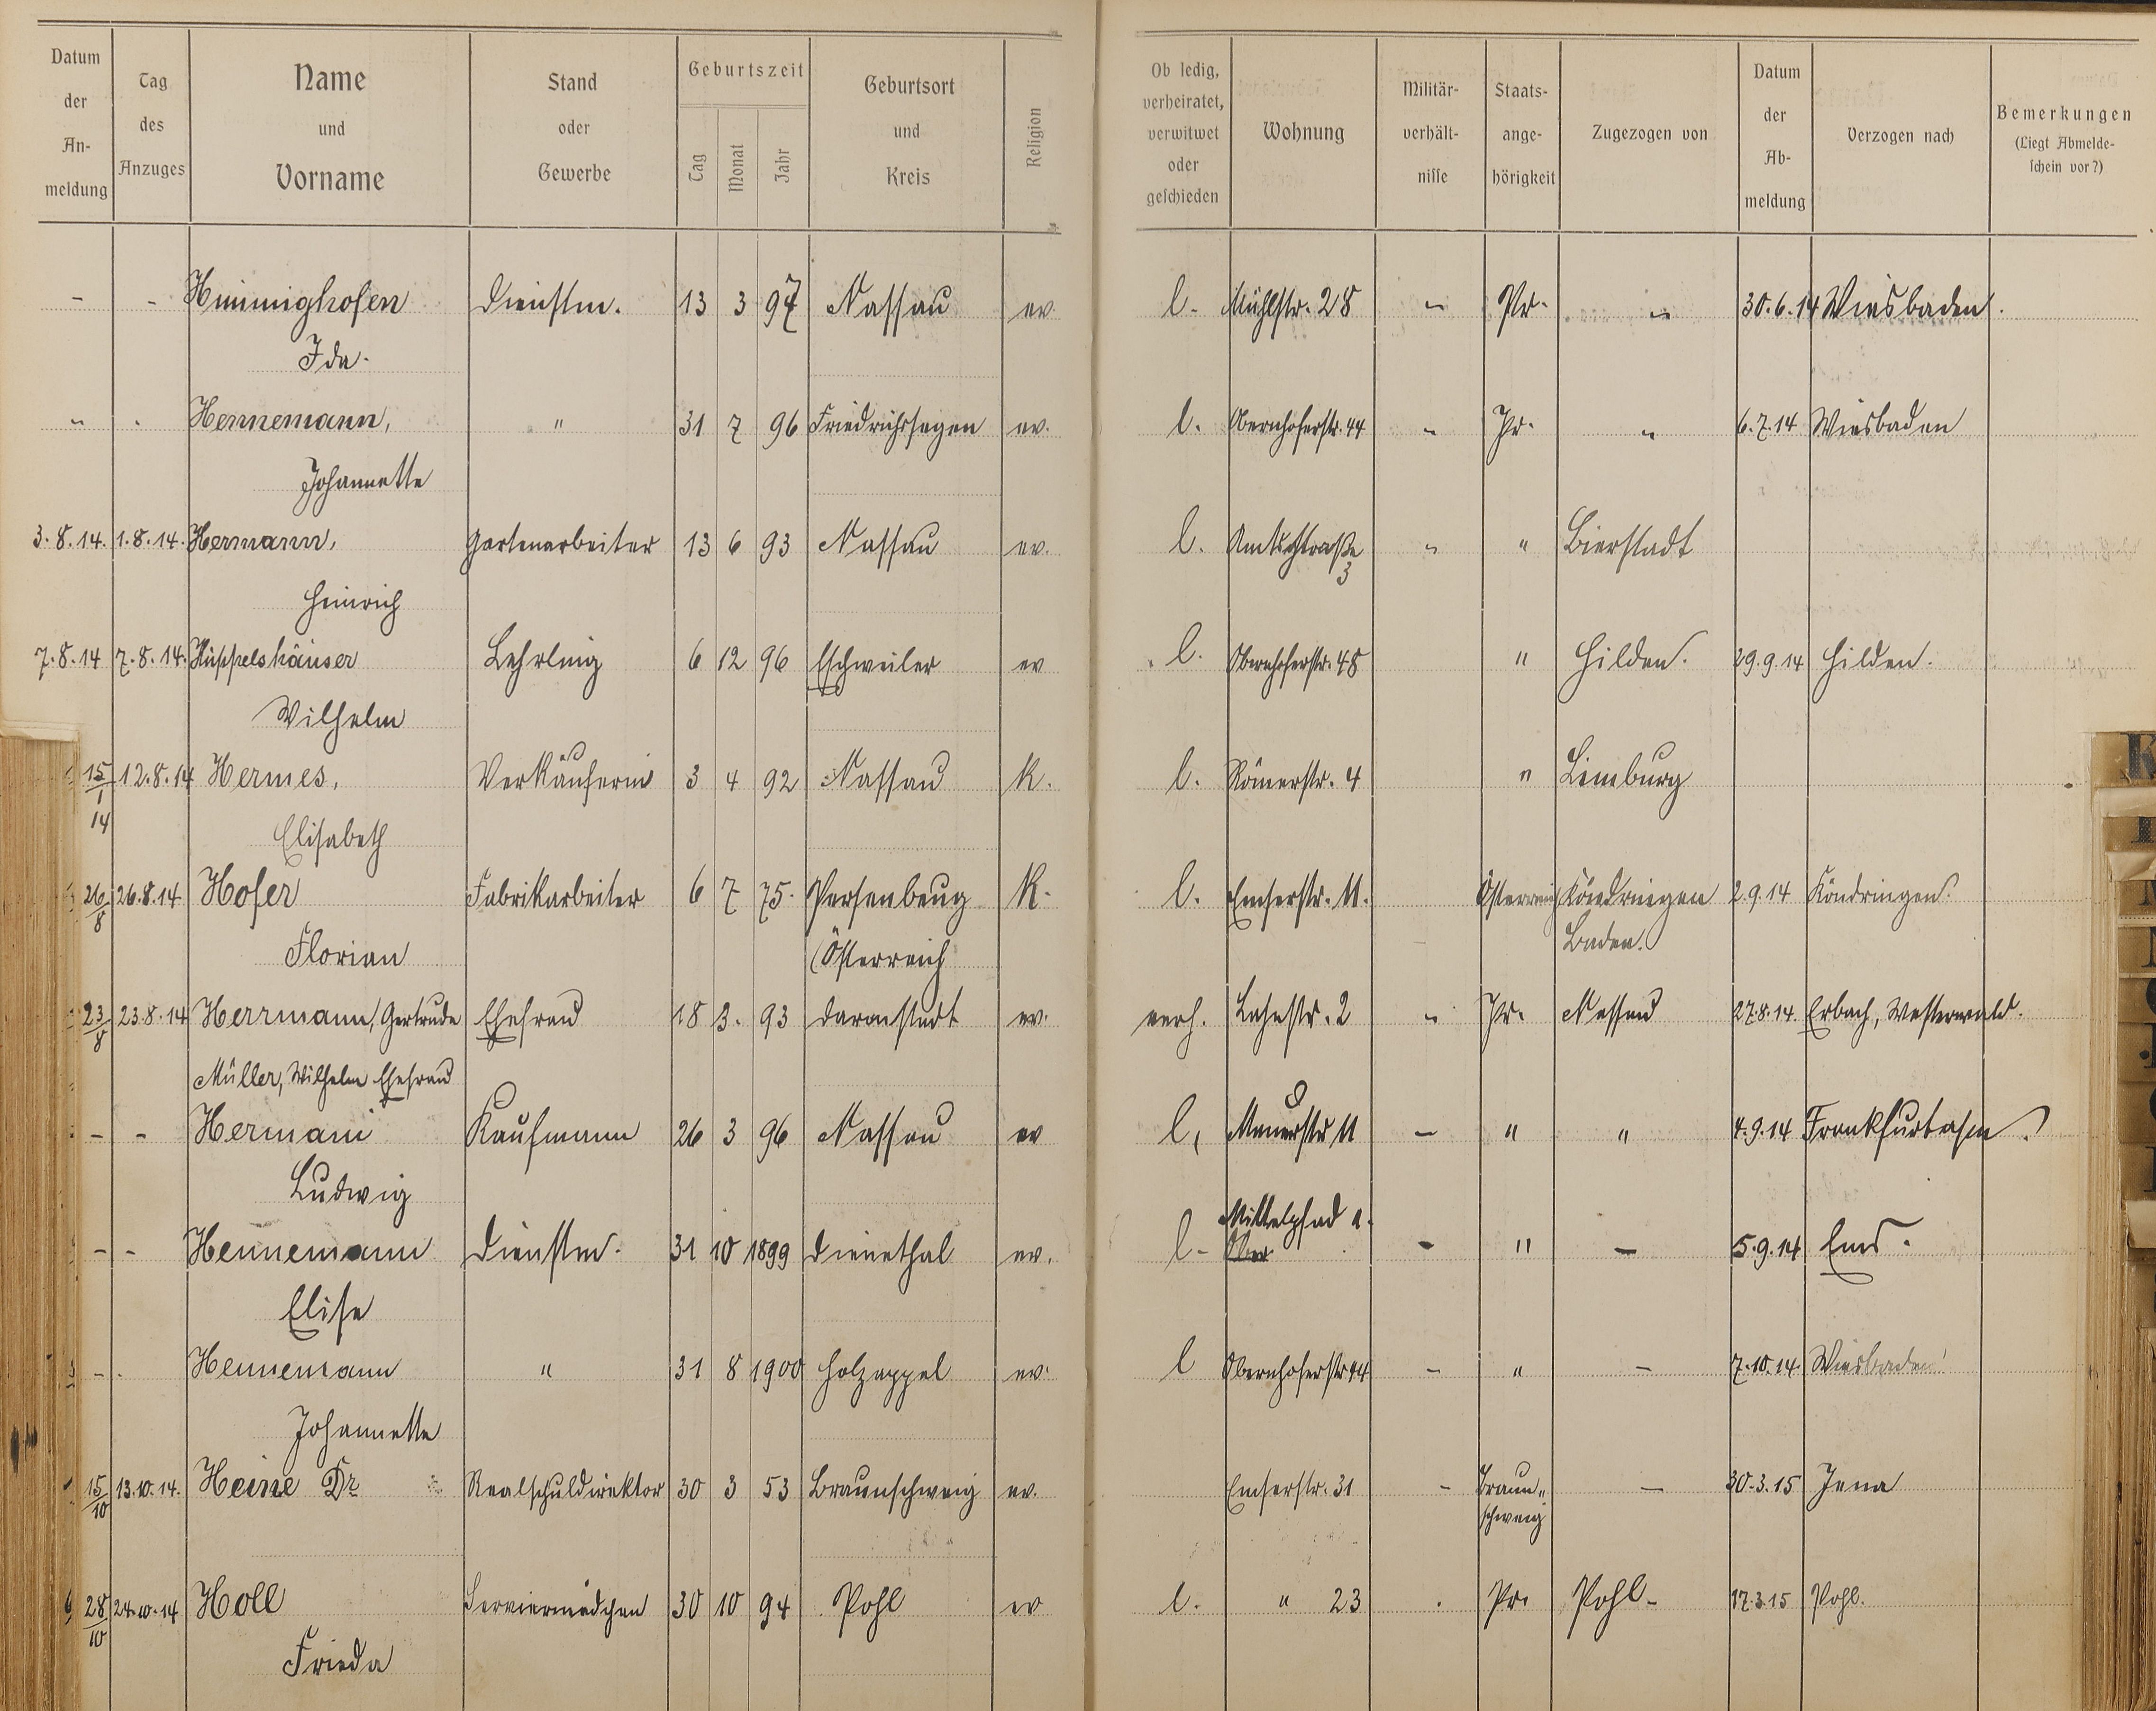 Datum der An-meldung | Tag des Anzuges | Name und Vorname | Stand oder Gewerbe | Geburtszeit Tag Monat Jahr | Geburtsort und Kreis | Religion | Ob ledig, verheiratet, verwitwet oder geschieden | Wohnung | Militär-verhält-nisse | Staats-ange-hörigkeit | Zugezogen von | Datum der Ab-meldung | Verzogen nach | Bemerkungen (Liegt Abmelde-schein vor?)
- - Himmighofen Dienstm. 13 3 97 Nassau ev l. Mühlstr. 28 " Pr. " 30.6.14 Wiesbaden.
Ida.
" . Hennemann, " 31 7 96 Friedrichssegen ev. l. Obernhoferstr. 44 " Pr. " 6.7.14 Wiesbaden
Johannette
3.8.14. 1.8.14. Hermann, Gartenarbeiter 13 6 93 Nassau ev. l. Amtsstraße 3 " " Bierstadt
Heinrich
7.8.14 7.8.14. Hüppelshäuser Lehrling 6 12 96 Eschweiler ev l. Obernhoferstr. 48 " Hilden. 29.9.14 Hilden.
Wilhelm
15/1 14 12.8.14 Hermes, Verkäuferin 3 4 92 Nassau K. l. Römerstr. 4 " Limburg
Elisabeth
26/8 26.8.14 Hofer Fabrikarbeiter 6 7 75. Persenbeug K. l. Emserstr. 11. Österreich Köndringen 2.9.14 Köndringen.
Florian (Österreich Baden.
23/8 23.8.14 Herrmann, Gertrude Ehefrau 18 3. 93 Darmstadt ev. verh. Lahnstr. 2 " Pr. Nassau 27.8.14. Erbach, Westerwald.
Müller, Wilhelm Ehefrau
- - Hermani Kaufmann 26 3 96 Nassau ev l, Mauerstr 11 - " " 4.9.14 Frankfurt a/m.
Ludwig
Mittelpfad 1.
- - Hennemann Dienstm. 31 10 1899 Dienethal ev. l - Ober - " - 5.9.14 Ems.
Elise
- . Hennemann " 31 8 1900 Holzappel ev. l Obernhoferstr 44 - " - 7.10.14. Wiesbaden
Johannette
15/10 13.10.14. Heine Dr Realschuldirektor 30 3 53 Braunschweig ev. Emserstr. 31 - Braun„ - 30.3.15 Jena
schweig
28/10 24.10.14 Holl Serviermädchen 30 10 94 Pohl ev l. " 23 . Pr. Pohl - 17.3.15 Pohl.
Frieda